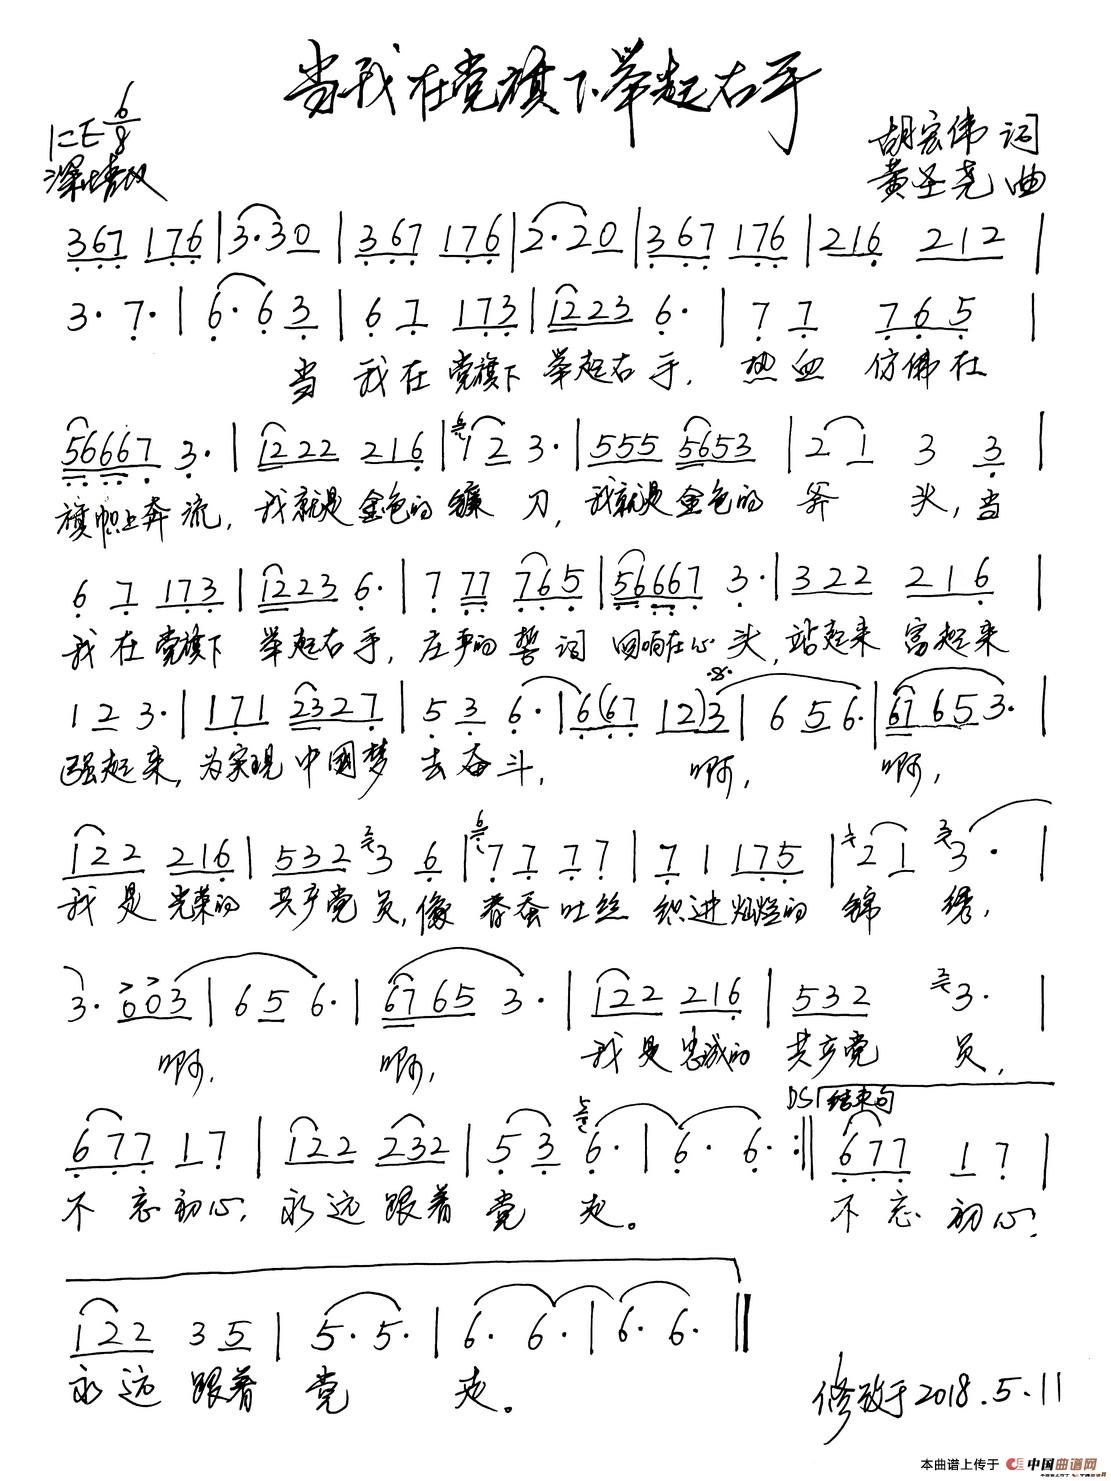 当我在党旗下举起右手
1=E 6/8
深情
胡宏伟 词
黄圣尧 曲
367 176 | 3·30 | 367 176 | 2·20 | 367 176 | 216 212 |
3· 7· | 6· 63 | 67 173 | 1223 6· | 77 765 |
当 我在党旗下 举起右手, 热血 仿佛在
56667 3· | 1222 216 | 12 3· | 555 5653 | 21 3 3 |
旗帜上奔流, 我就是金色的镰刀, 我就是金色的斧头, 当
67 173 | 1223 6· | 7 77 765 | 56667 3· | 322 216 |
我在党旗下 举起右手, 庄严的誓词 回响在心头, 站起来 富起来
12 3· | 171 2327 | 53 6· | 6(67 12)3 | 65 6· | 67653· |
强起来, 为实现中国梦 去奋斗, 啊, 啊,
122 216 | 532 3 6 | 77 77 | 71 175 | 21 3· |
我是光荣的 共产党员, 像春蚕吐丝 织进灿烂的锦绣,
3· 003 | 65 6· | 6765 3· | 122 216 | 532 3· |
啊, 啊, 我是忠诚的 共产党员,
DS 结束句
677 17 | 122 232 | 53 6· | 6· 6· :|| 677 17 |
不忘初心, 永远跟着党走。 不忘初心,
122 35 | 5· 5· | 6· 6· | 6· 6· ||
永远跟着党走。
修改于2018.5.11
本曲谱上传于 中国曲谱网